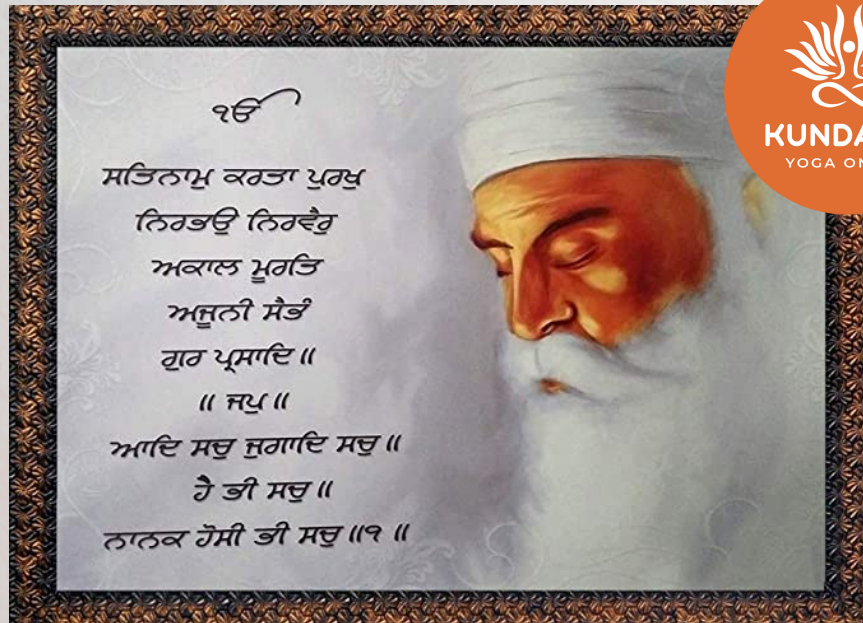 ੴ
ਸਤਿਨਾਮੁ ਕਰਤਾ ਪੁਰਖੁ
ਨਿਰਭਉ ਨਿਰਵੈਰੁ
ਅਕਾਲ ਮੂਰਤਿ
ਅਜੂਨੀ ਸੈਭੰ
ਗੁਰ ਪ੍ਰਸਾਦਿ ॥
॥ ਜਪੁ ॥
ਆਦਿ ਸਚੁ ਜੁਗਾਦਿ ਸਚੁ ॥
ਹੈ ਭੀ ਸਚੁ ॥
ਨਾਨਕ ਹੋਸੀ ਭੀ ਸਚੁ ॥੧ ॥
YOGA